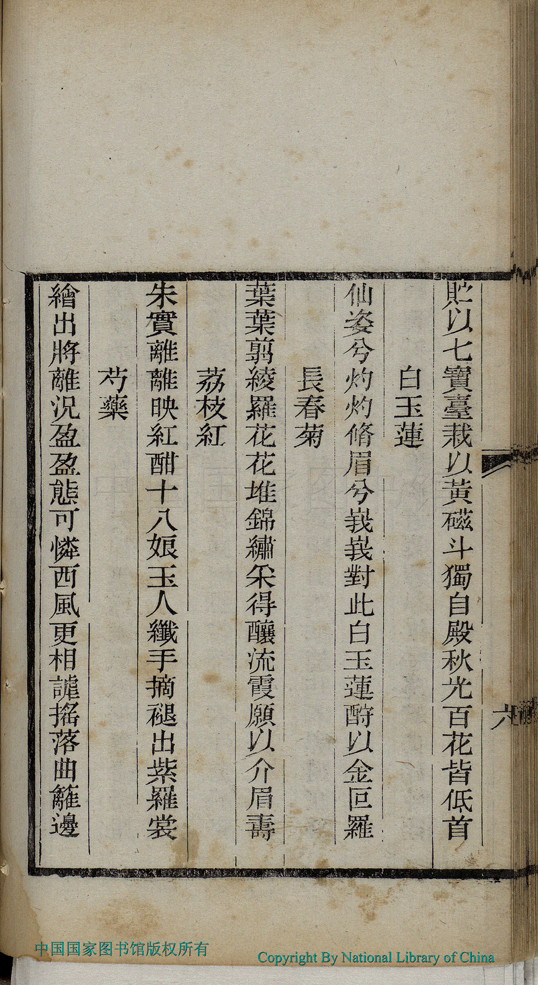 貯以七寶臺栽以黃磁斗獨自殿秋光百花皆低首
白玉蓮
仙姿兮灼灼脩眉兮峩峩對此白玉蓮酹以金叵羅
長春菊
葉葉翦綾羅花花堆錦繡采得釀流霞願以介眉壽
荔枝紅
朱實離離映紅酣十八娘玉人纖手摘褪出紫羅裳
芍藥
繪出將離況盈盈態可憐西風更相謔搖落曲籬邊
六
中国国家图书馆版权所有
Copyright By National Library of China